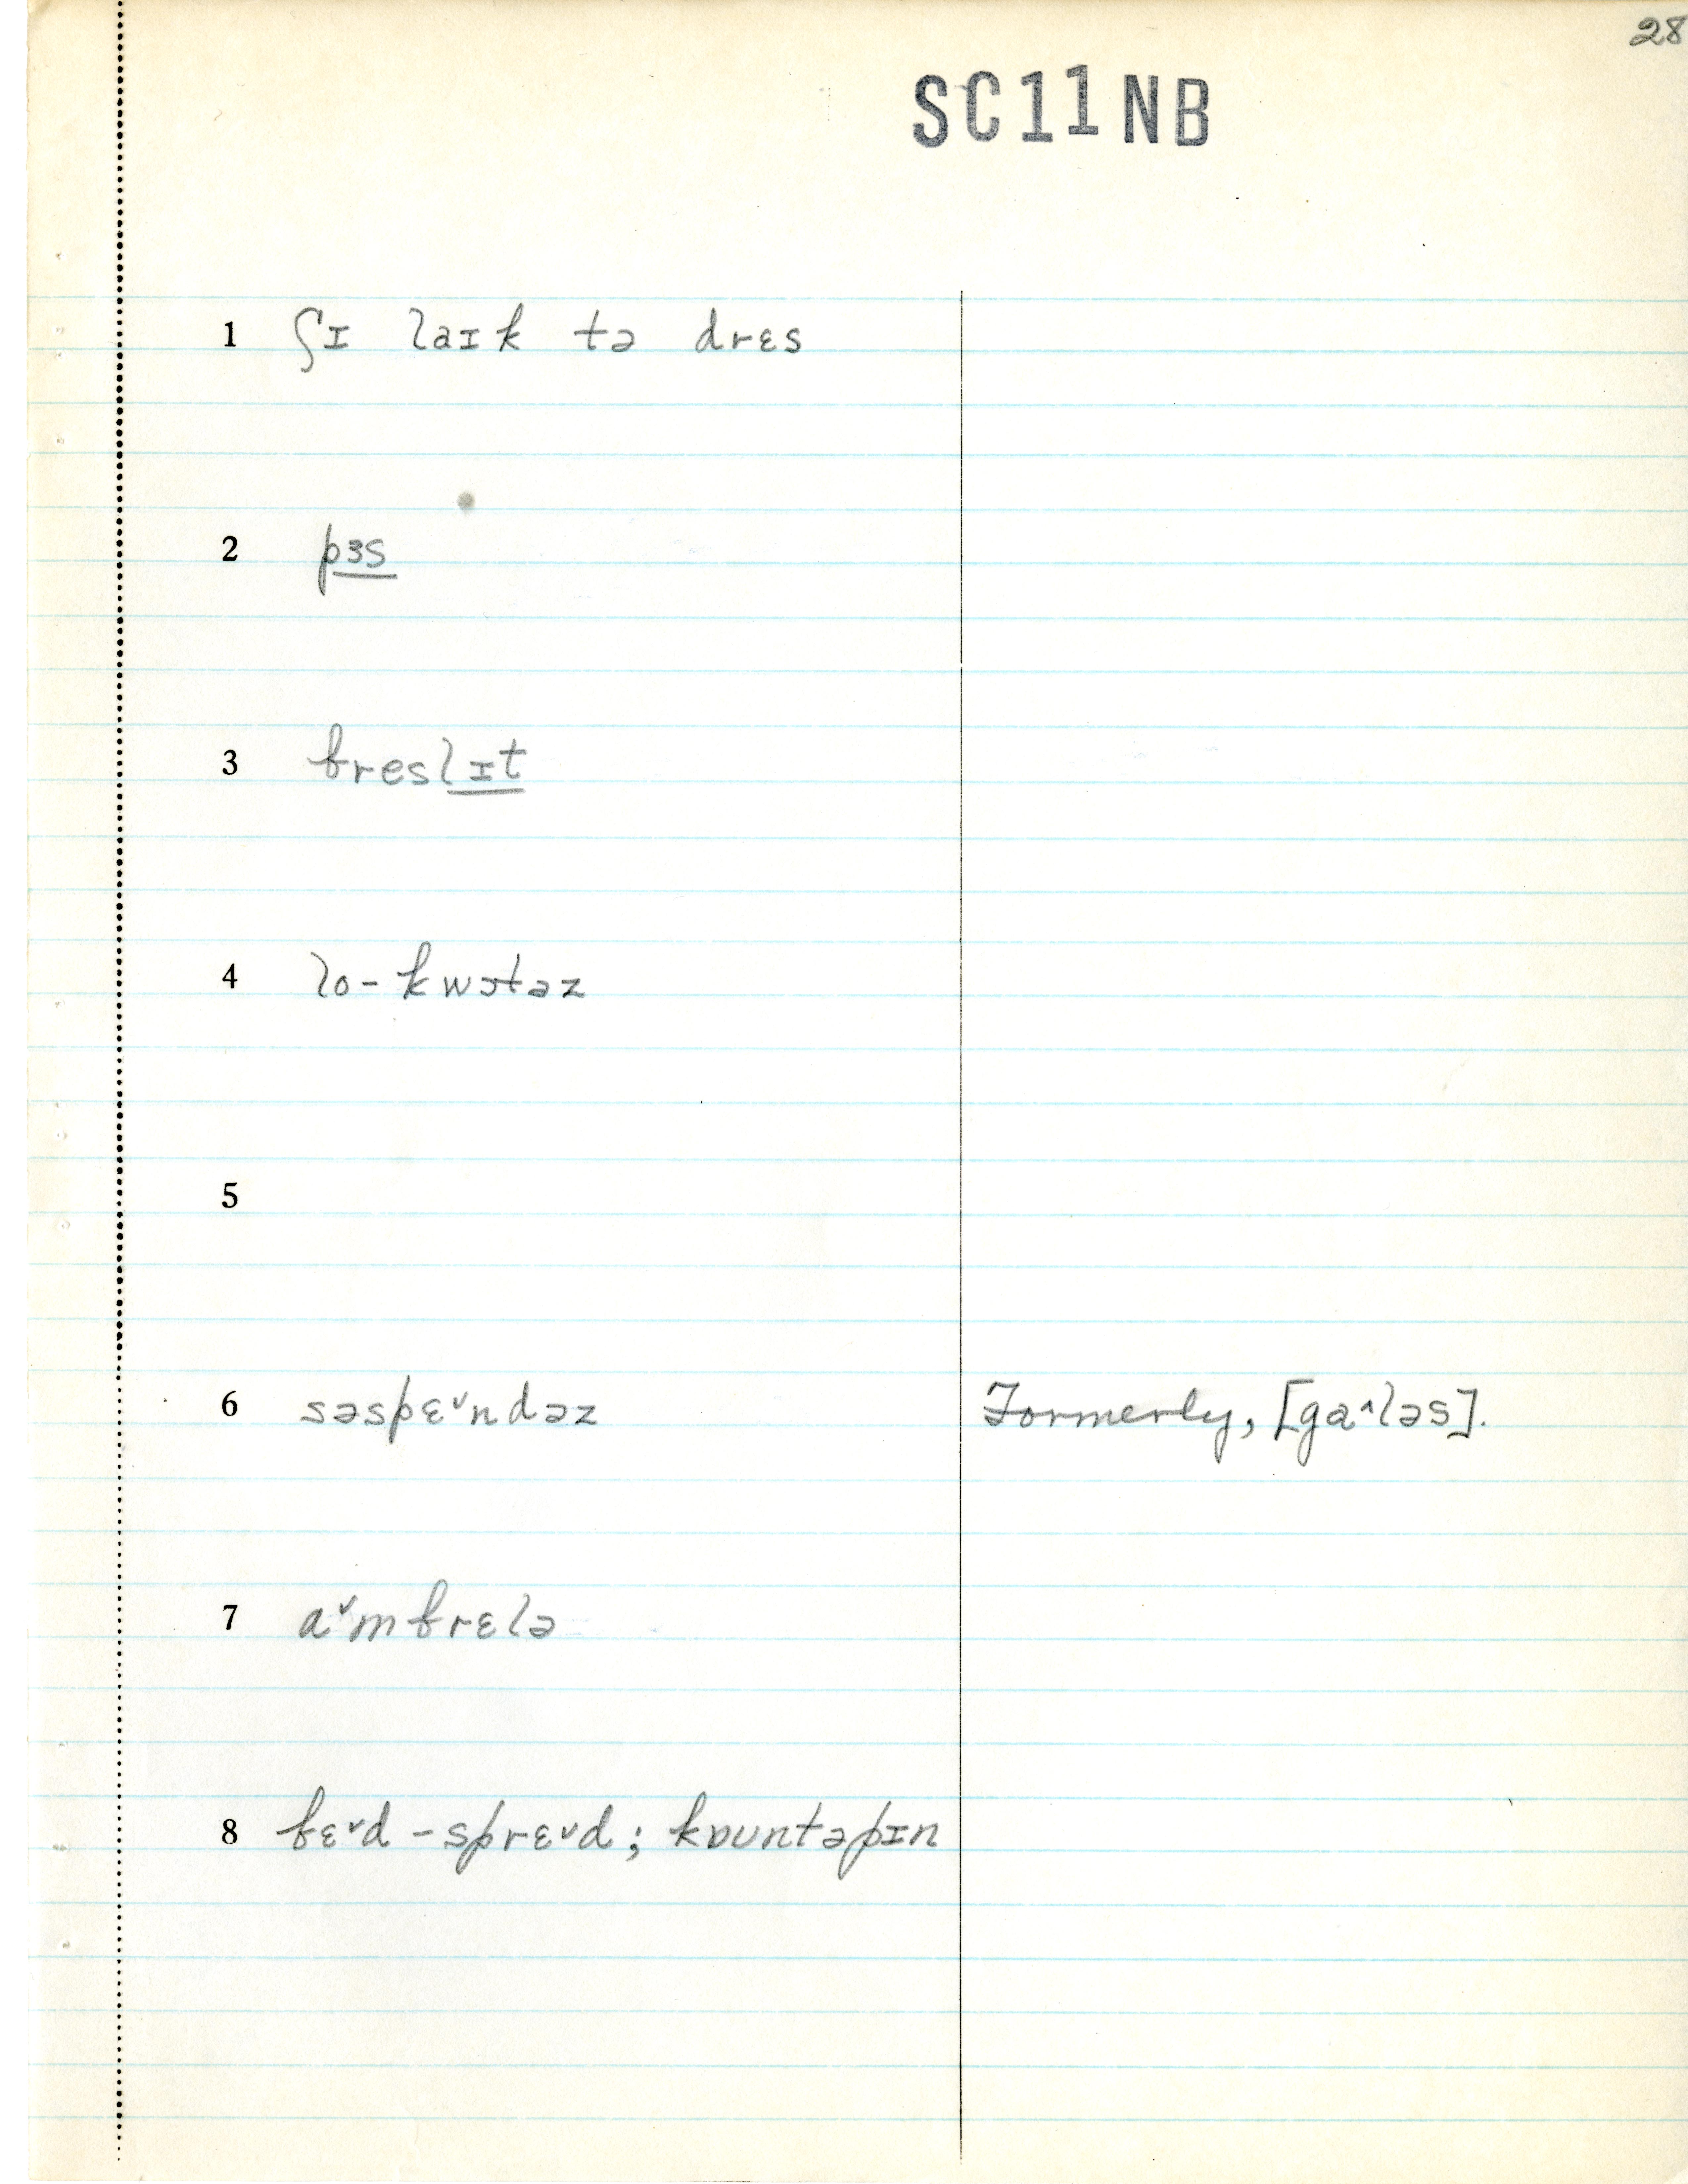 28
SC11NB
1 ʃɪ laɪk tə drɛs
2 pɜs
3 breslɪt
4 lo-kwɔtəz
5
6 səspɛ˅ndəz Formerly, [ga˄ləs].
7 a˅mbrɛlə
8 bɛ˅d-sprɛ˅d; kɒuntəpɪn